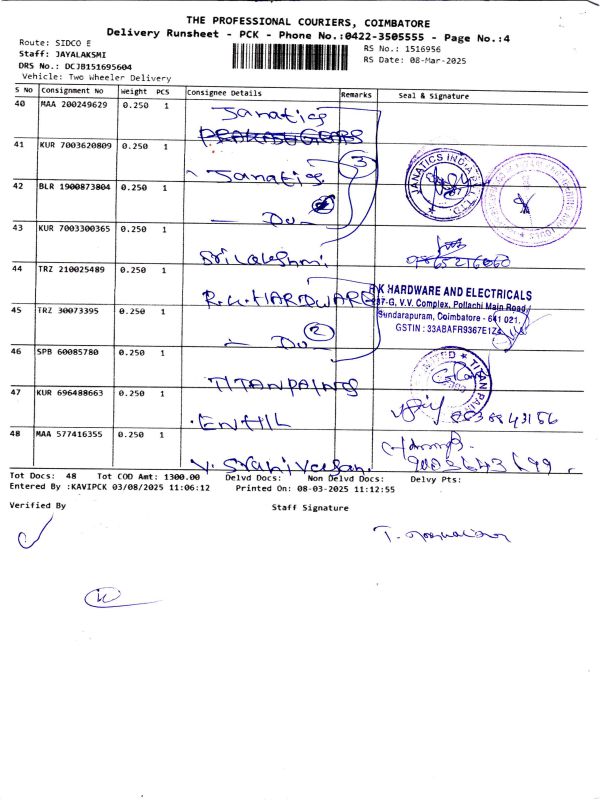 THE PROFESSIONAL COURIERS, COIMBATORE
Delivery Runsheet - PCK - Phone No.:0422-3505555 - Page No.:4
Route: SIDCO E
RS No.: 1516956
Staff: JAYALAKSMI
RS Date: 08-Mar-2025
DRS No.: DCJB151695604
Vehicle: Two Wheeler Delivery
S No Consignment No Weight PCS Consignee Details Remarks Seal & Signature
40 MAA 200249629 0.250 1 Janatics
41 KUR 7003620809 0.250 1 Janatics 3
JANATICS INDIA
42 BLR 1900873804 0.250 1 - Do -
43 KUR 7003300365 0.250 1 Sri Lakshmi
44 TRZ 210025489 0.250 1 R.K. HARDWARE
K HARDWARE AND ELECTRICALS
37-G, V.V. Complex, Pollachi Main Road,
Sundarapuram, Coimbatore - 641 021.
GSTIN : 33ABAFR9367E1Z4
45 TRZ 30073395 0.250 1 - Do - 2
46 SPB 60085780 0.250 1 TITAN PAINTS
TITAN PAI
47 KUR 696488663 0.250 1
48 MAA 577416355 0.250 1
Tot Docs: 48 Tot COD Amt: 1300.00 Delvd Docs: Non Delvd Docs: Delvy Pts:
Entered By :KAVIPCK 03/08/2025 11:06:12 Printed On: 08-03-2025 11:12:55
Verified By Staff Signature